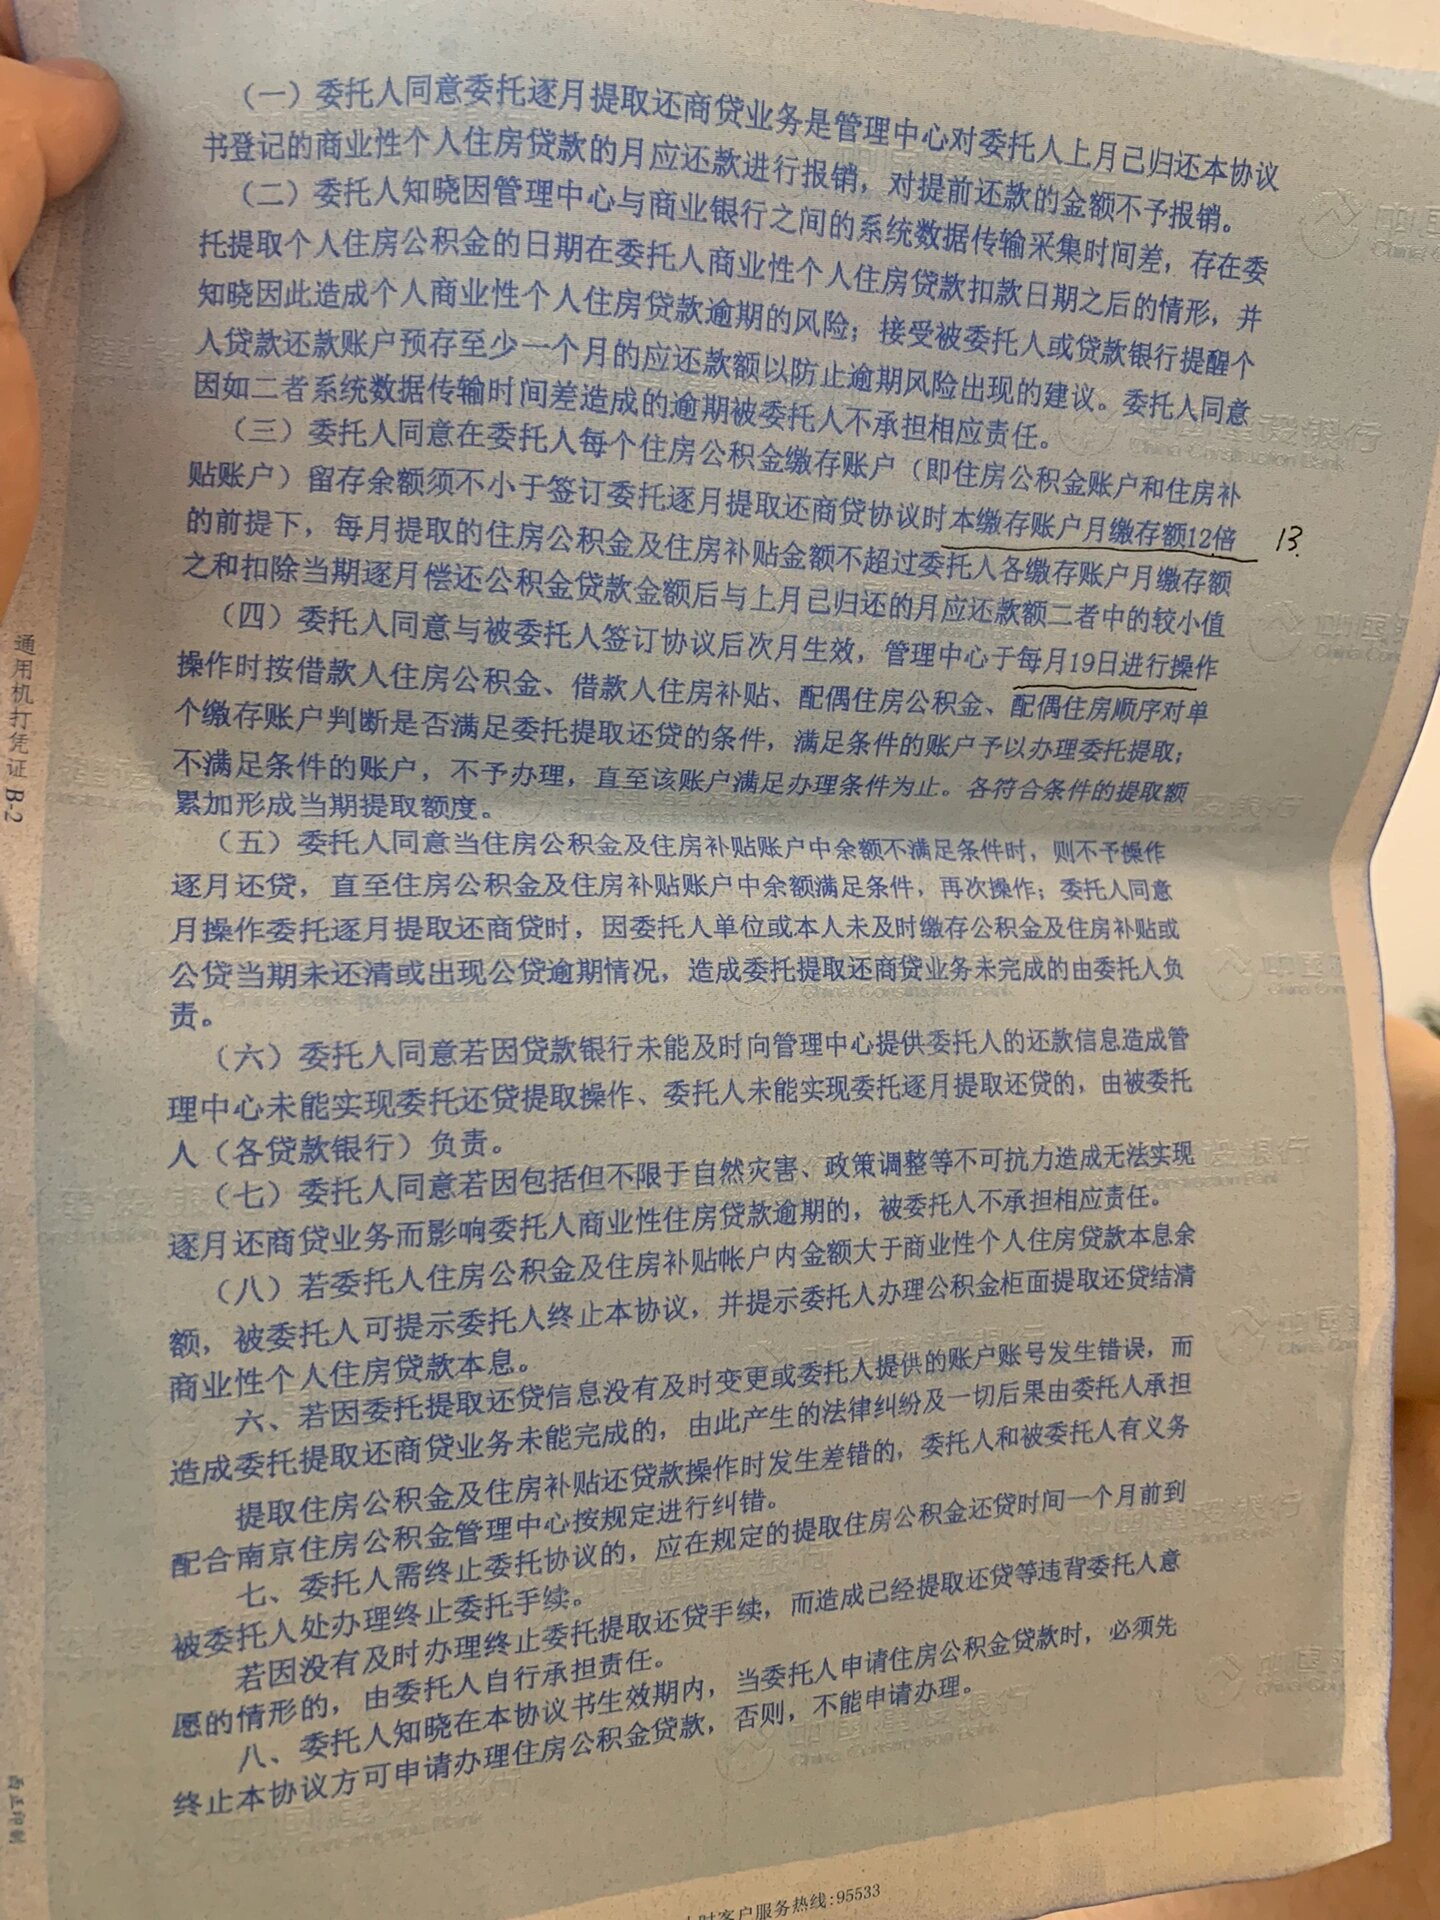 （一）委托人同意委托逐月提取还商贷业务是管理中心对委托人上月已归还本协议
书登记的商业性个人住房贷款的月应还款进行报销，对提前还款的金额不予报销。
（二）委托人知晓因管理中心与商业银行之间的系统数据传输采集时间差，存在委
托提取个人住房公积金的日期在委托人商业性个人住房贷款扣款日期之后的情形，并
知晓因此造成个人商业性个人住房贷款逾期的风险；接受被委托人或贷款银行提醒个
人贷款还款账户预存至少一个月的应还款额以防止逾期风险出现的建议。委托人同意
因如二者系统数据传输时间差造成的逾期被委托人不承担相应责任。
（三）委托人同意在委托人每个住房公积金缴存账户（即住房公积金账户和住房补
贴账户）留存余额须不小于签订委托逐月提取还商贷协议时本缴存账户月缴存额12倍 13.
的前提下，每月提取的住房公积金及住房补贴金额不超过委托人各缴存账户月缴存额
之和扣除当期逐月偿还公积金贷款金额后与上月已归还的月应还款额二者中的较小值
（四）委托人同意与被委托人签订协议后次月生效，管理中心于每月19日进行操作
操作时按借款人住房公积金、借款人住房补贴、配偶住房公积金、配偶住房顺序对单
个缴存账户判断是否满足委托提取还贷的条件，满足条件的账户予以办理委托提取；
不满足条件的账户，不予办理，直至该账户满足办理条件为止。各符合条件的提取额
累加形成当期提取额度。
（五）委托人同意当住房公积金及住房补贴账户中余额不满足条件时，则不予操作
逐月还贷，直至住房公积金及住房补贴账户中余额满足条件，再次操作；委托人同意
月操作委托逐月提取还商贷时，因委托人单位或本人未及时缴存公积金及住房补贴或
公贷当期未还清或出现公贷逾期情况，造成委托提取还商贷业务未完成的由委托人负
责。
（六）委托人同意若因贷款银行未能及时向管理中心提供委托人的还款信息造成管
理中心未能实现委托还贷提取操作、委托人未能实现委托逐月提取还贷的，由被委托
人（各贷款银行）负责。
（七）委托人同意若因包括但不限于自然灾害、政策调整等不可抗力造成无法实现
逐月还商贷业务而影响委托人商业性住房贷款逾期的，被委托人不承担相应责任。
（八）若委托人住房公积金及住房补贴帐户内金额大于商业性个人住房贷款本息余
额，被委托人可提示委托人终止本协议，并提示委托人办理公积金柜面提取还贷结清
商业性个人住房贷款本息。
六、若因委托提取还贷信息没有及时变更或委托人提供的账户账号发生错误，而
造成委托提取还商贷业务未能完成的，由此产生的法律纠纷及一切后果由委托人承担
提取住房公积金及住房补贴还贷款操作时发生差错的，委托人和被委托人有义务
配合南京住房公积金管理中心按规定进行纠错。
七、委托人需终止委托协议的，应在规定的提取住房公积金还贷时间一个月前到
被委托人处办理终止委托手续。
若因没有及时办理终止委托提取还贷手续，而造成已经提取还贷等违背委托人意
愿的情形的，由委托人自行承担责任。
八、委托人知晓在本协议书生效期内，当委托人申请住房公积金贷款时，必须先
终止本协议方可申请办理住房公积金贷款，否则，不能申请办理。
通用机打凭证 B-2
小时客户服务热线:95533